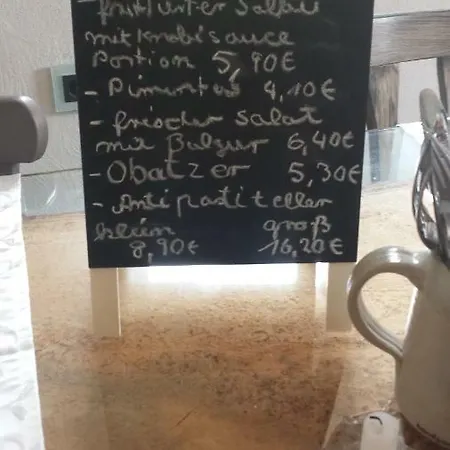 - frittierter Salbei
mit Knobisauce
Portion 5,90€
- Pimientos 4,10€
- frischer Salat
mit Bulgur 6,40€
- Obatzer 5,30€
- Antipastiteller
klein groß
8,90€ 16,20€